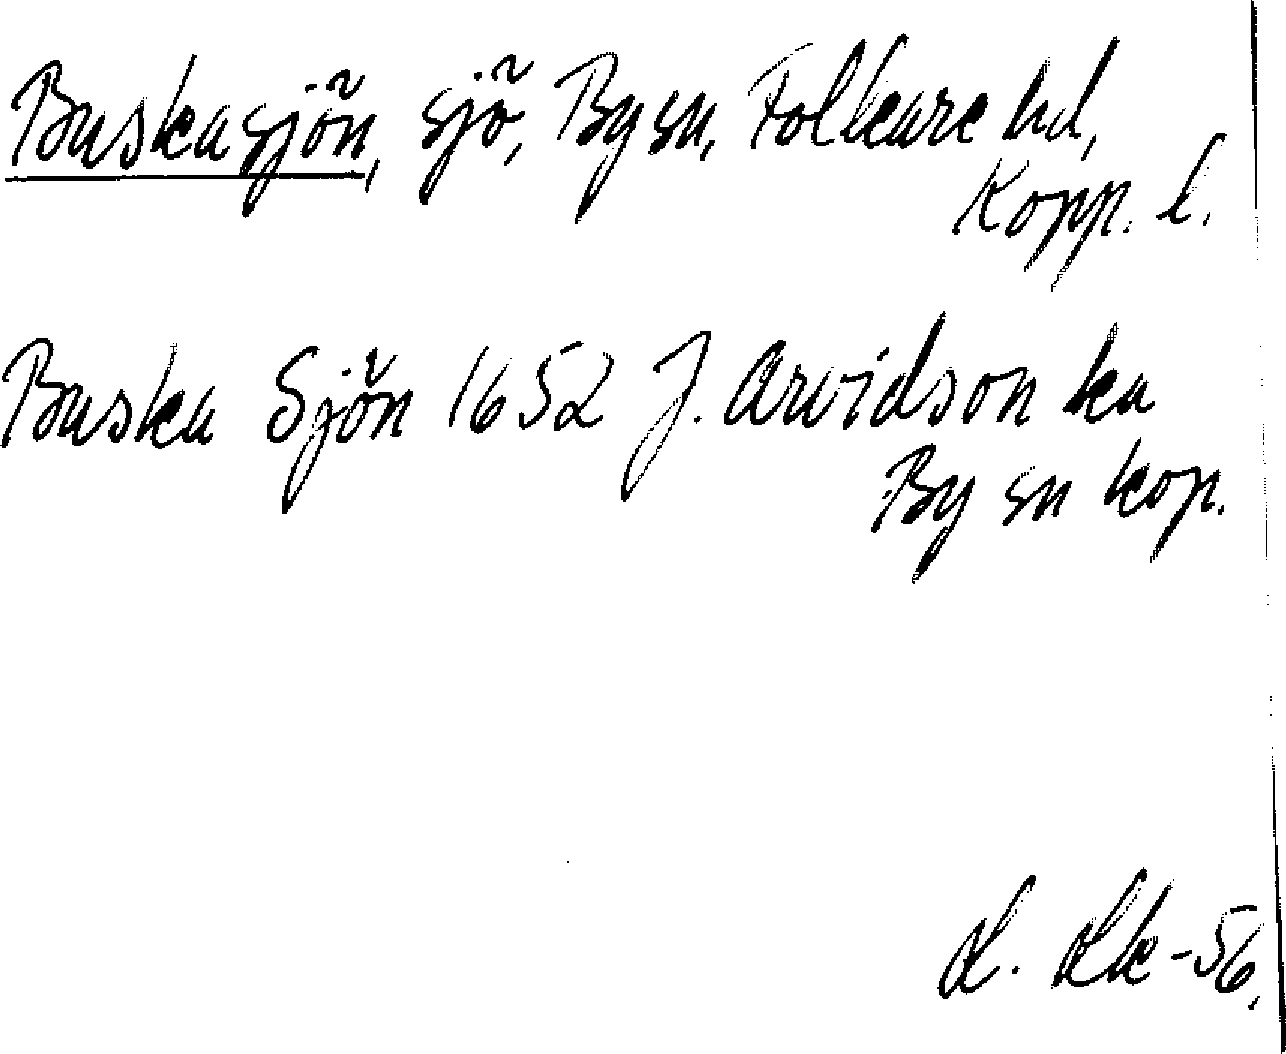 Buskasjön, sjö, By sn, Folkare hd,
Kopp. l.
Buska Sjön 1652 J. Arvidson ka
By sn kop.
-56.